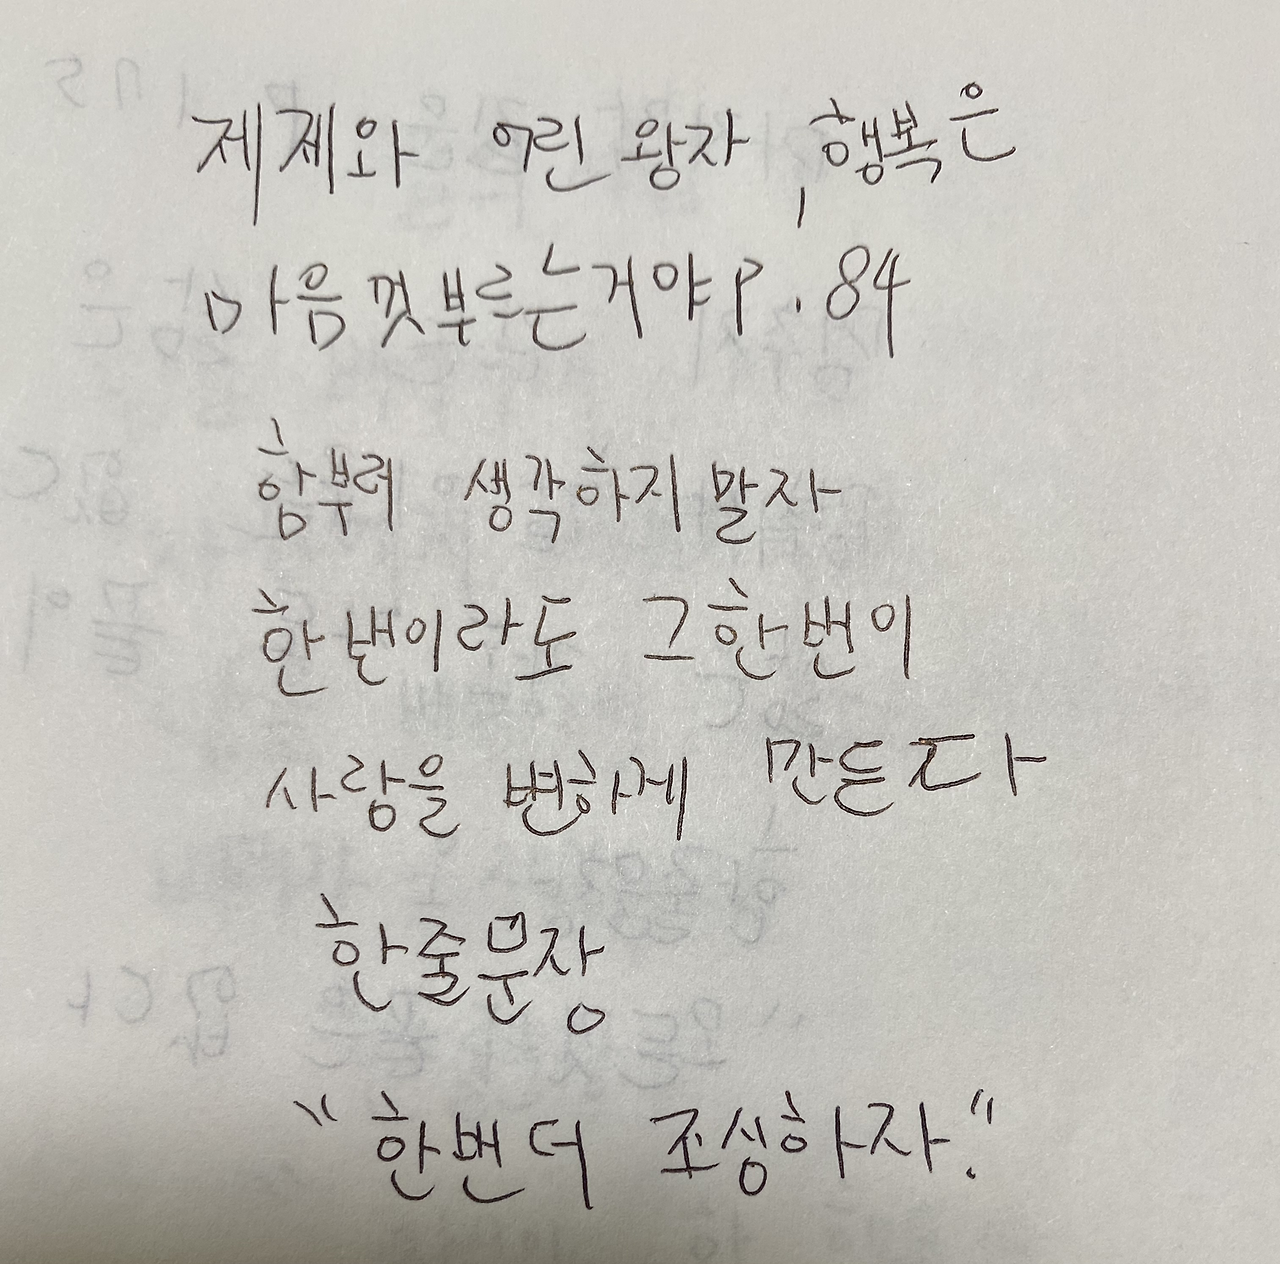 제제와 어린 왕자, 행복은
마음껏부르는거야 P. 84
함부러 생각하지 말자
한번이라도 그한번이
사람을 변하게 만든다
한줄문장
"한번더 조심하자."